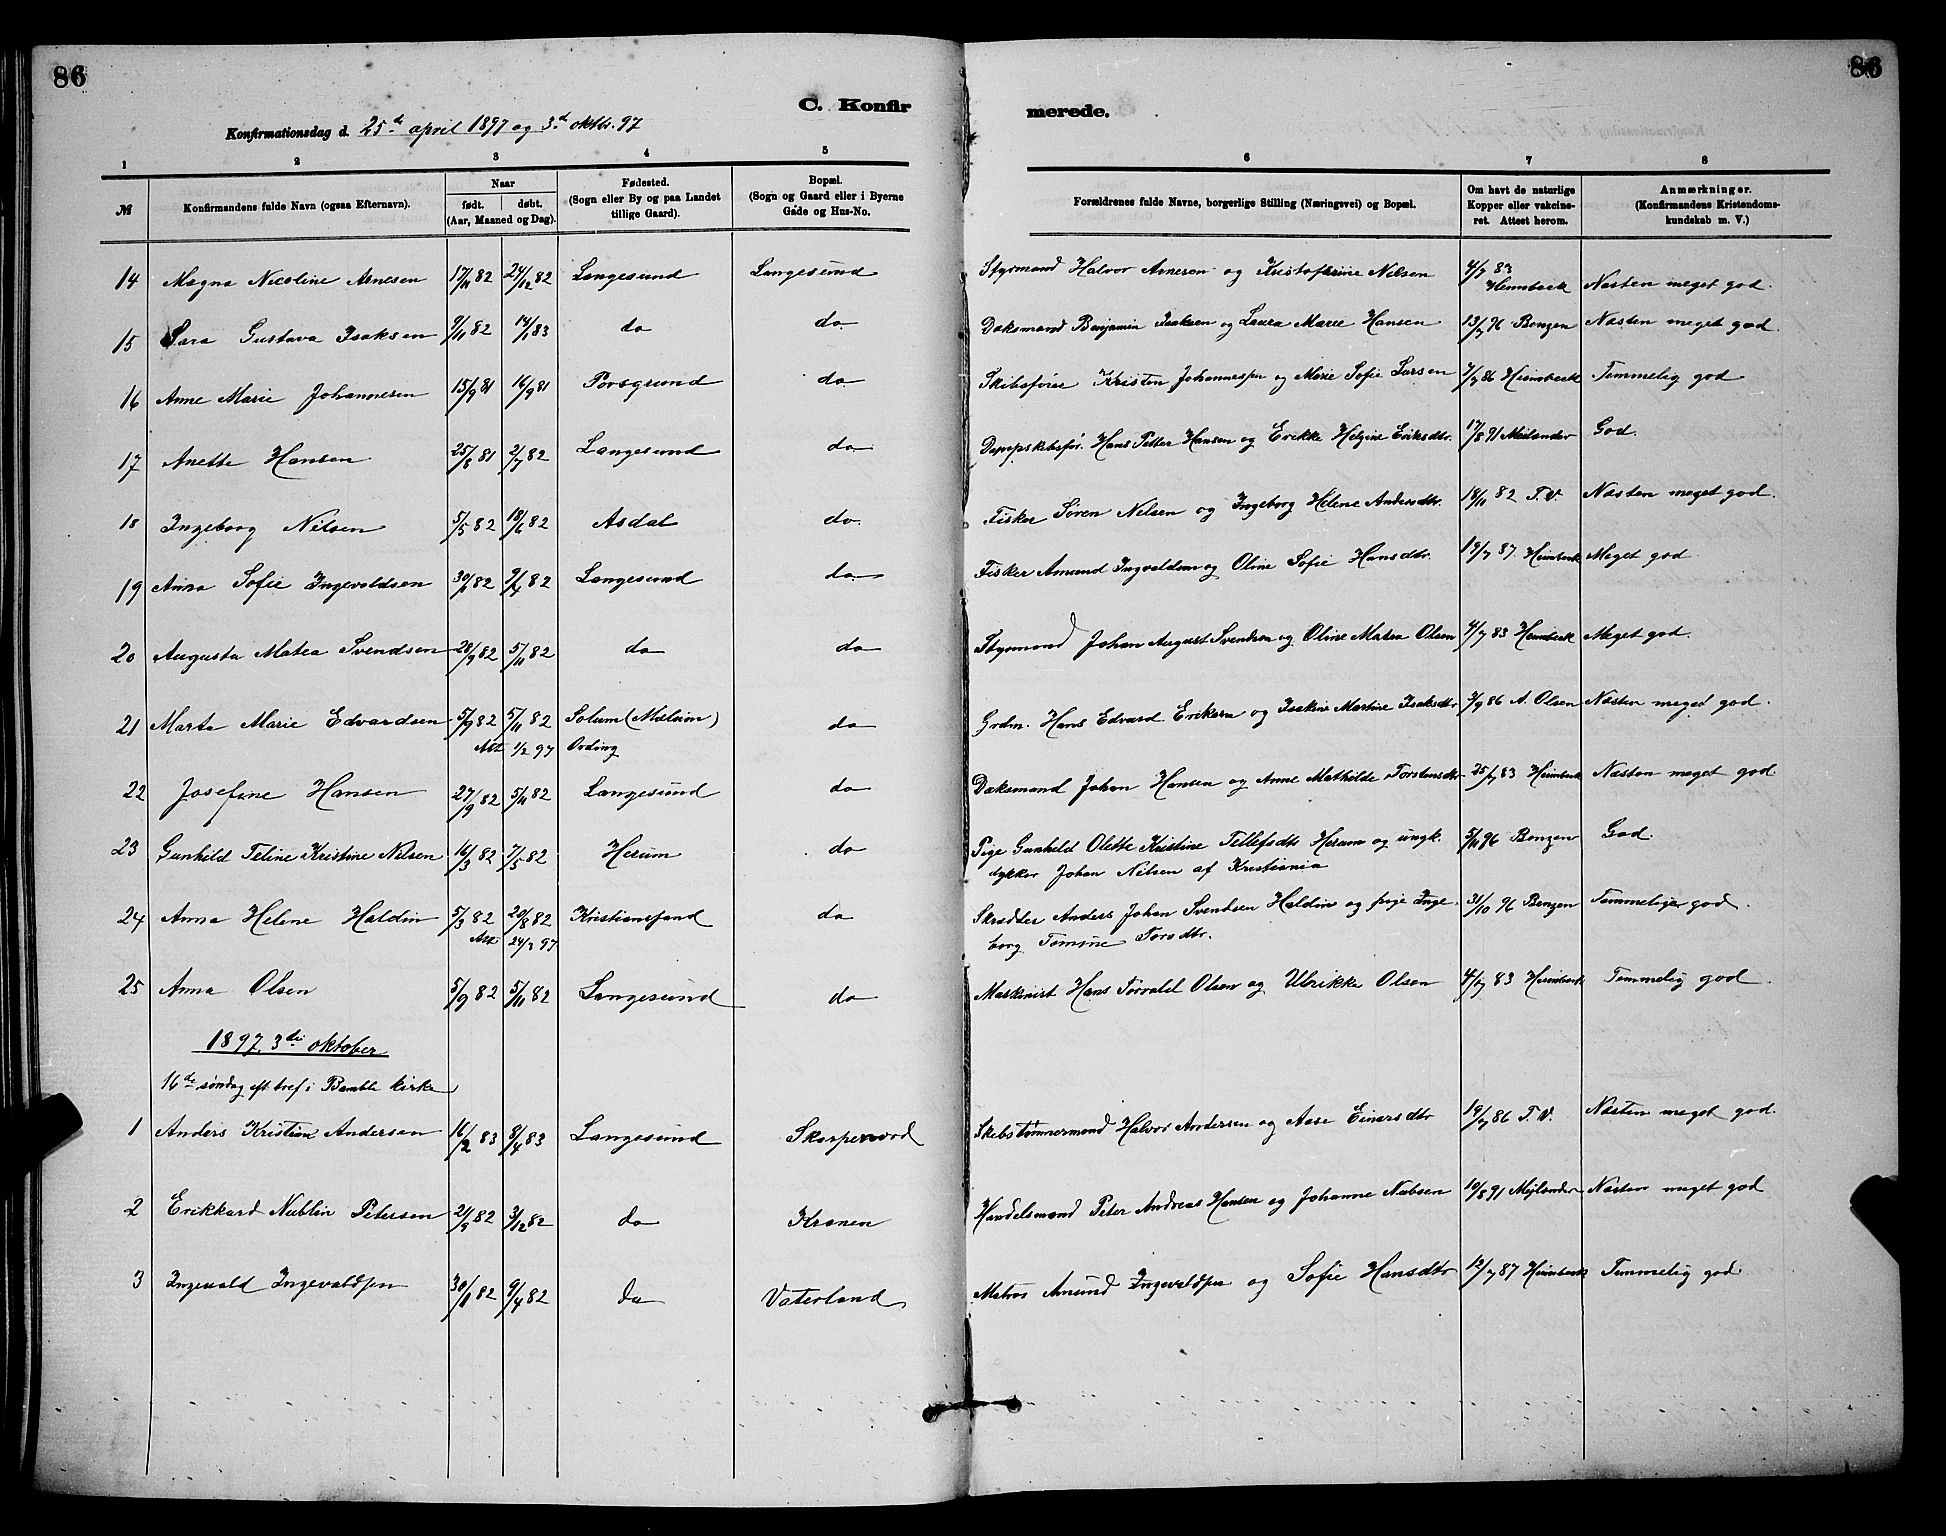 86
86
C. Konfir
merede.
Konfirmationsdag d. 25de april 1897 og 3d oktbr. 97
1 2 3 4 5 6 7 8
№
Konfirmandens fulde Navn (ogsaa Efternavn).
Naar
født. døbt.
(Aar, Maaned og Dag).
Fødested.
(Sogn eller By og paa Landet
tillige Gaard).
Bopæl.
(Sogn og Gaard eller i Byerne
Gade og Hus-No.
Forældrenes fulde Navne, borgerlige Stilling (Næringsvei) og Bopæl.
Om havt de naturlige
Kopper eller vakcine-
ret. Attest herom.
Anmærkninger.
(Konfirmandens Kristendoms-
kundskab m. V.)
14 Magna Nicoline Arnesen 17/11 82 24/12 82 Langesund Langesund Styrmand Halvor Arnesen og Kristofhrine Nilsen 4/7 83 Heimbeck Næsten meget god.
15 Sara Gustava Isaksen 9/11 82 14/1 83 do do Doksmand Benjamin Isaksen og Laura Marie Hansen 13/7 96 Benzen Næsten meget god.
16 Anne Marie Johannesen 15/9 81 16/9 81 Porsgrund do Skibsfører Kristen Johannessen og Marie Sofie Larsen 7/7 86 Heimbeck Temmelig god
17 Anette Hansen 25/8 81 2/7 82 Langesund do Dampskibsfør. Hans Petter Hansen og Erikke Helgine Eriksdtr. 17/8 91 Meilænder God.
18 Ingeborg Nilsen 5/5 82 18/6 82 Asdal do. Fisker Søren Nilsen og Ingeborg Helene Andersdtr. 18/11 82 T.V. Næsten meget god.
19 Anna Sofie Ingevaldsen 30/1 82 9/4 82 Langesund do Fisker Amund Ingvaldsen og Oline Sofie Hansdtr. 19/7 87 Heimbeck Meget god
20 Augusta Matea Svendsen 28/9 82 5/11 82 do do Styrmand Johan August Svendsen og Oline Matea Olsen 4/7 83 Heimbeck Meget god.
21 Marta Marie Edvardsen 5/9 82 5/11 82 Solum (Mælum) do Grdm. Hans Edvard Eriksen og Isakine Martine Isaksdtr 3/9 86 A. Olsen Næsten meget god.
Att 1/2 97 Ording
22 Josefine Hansen 27/9 82 5/11 82 Langesund do Doksmand Johan Hansen og Anne Mathilde Torstensdtr 25/7 83 Heimbeck Næsten meget god
23 Gunhild Teline Kristine Nilsen 16/3 82 7/5 82 Herum do Pige Gunhild Olette Kristine Tellefsdtr Herum og ungk. 5/11 96 Benzen God.
dykker Johan Nilsen af Kristiania
24 Anna Helene Haldin 5/3 82 20/8 82 Kristiansand do Skrædder Anders Johan Svendsen Haldin og pige Inge- 31/10 96 Benzen Temmelig god.
Att 24/2 97 borg Tomine Torsdtr.
25 Anna Olsen 5/9 82 5/11 82 Langesund do Maskinist Hans Torvald Olsen og Ulrikke Olsen 4/7 83 Heimbeck Temmelig god
1897. 3die oktober
16de søndag eft tref. i Bamble kirke
1 Anders Kristian Andersen 16/2 83 8/4 83 Langesund Skarpenord Skibstømmermand Halvor Andersen og Aase Einarsdtr 19/7 86 T.V. Næsten meget god.
2 Erikkard Nublin Petersen 21/9 82 3/12 82 do Kranen Handelsmand Peter Andreas Hansen og Johanne Nubsen 10/8 91 Mejlænder Næsten meget god
3 Ingevald Ingevaldsen 30/1 82 9/4 82 do Vaterland Matros Amund Ingevaldsen og Sofie Hansdtr 12/7 87 Heimbeck Temmelig god.